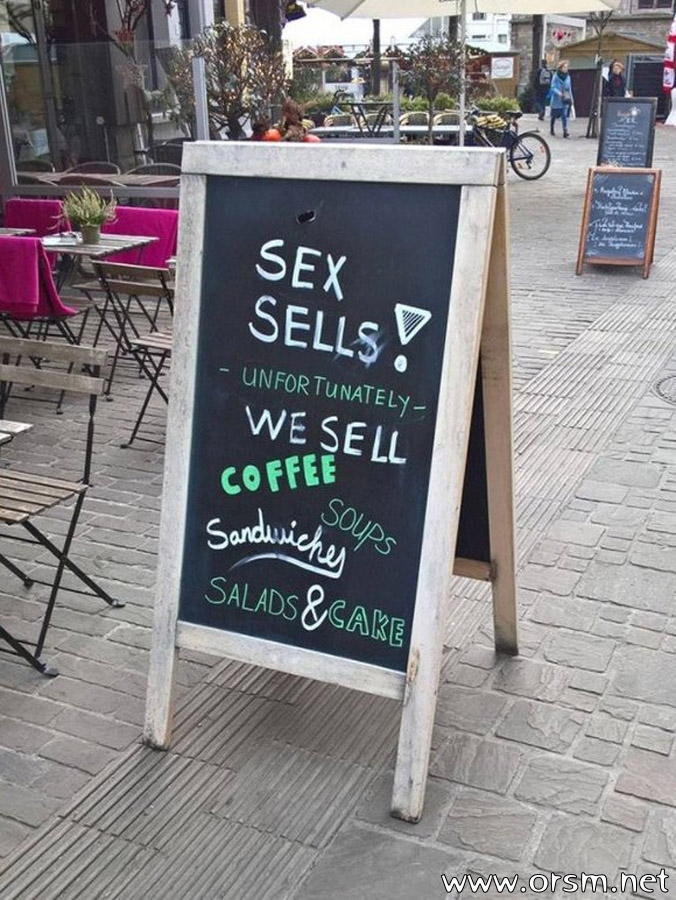 SEX
SELLS!
- UNFORTUNATELY -
WE SELL
COFFEE
SOUPS
Sandwiches
SALADS & CAKE
www.orsm.net